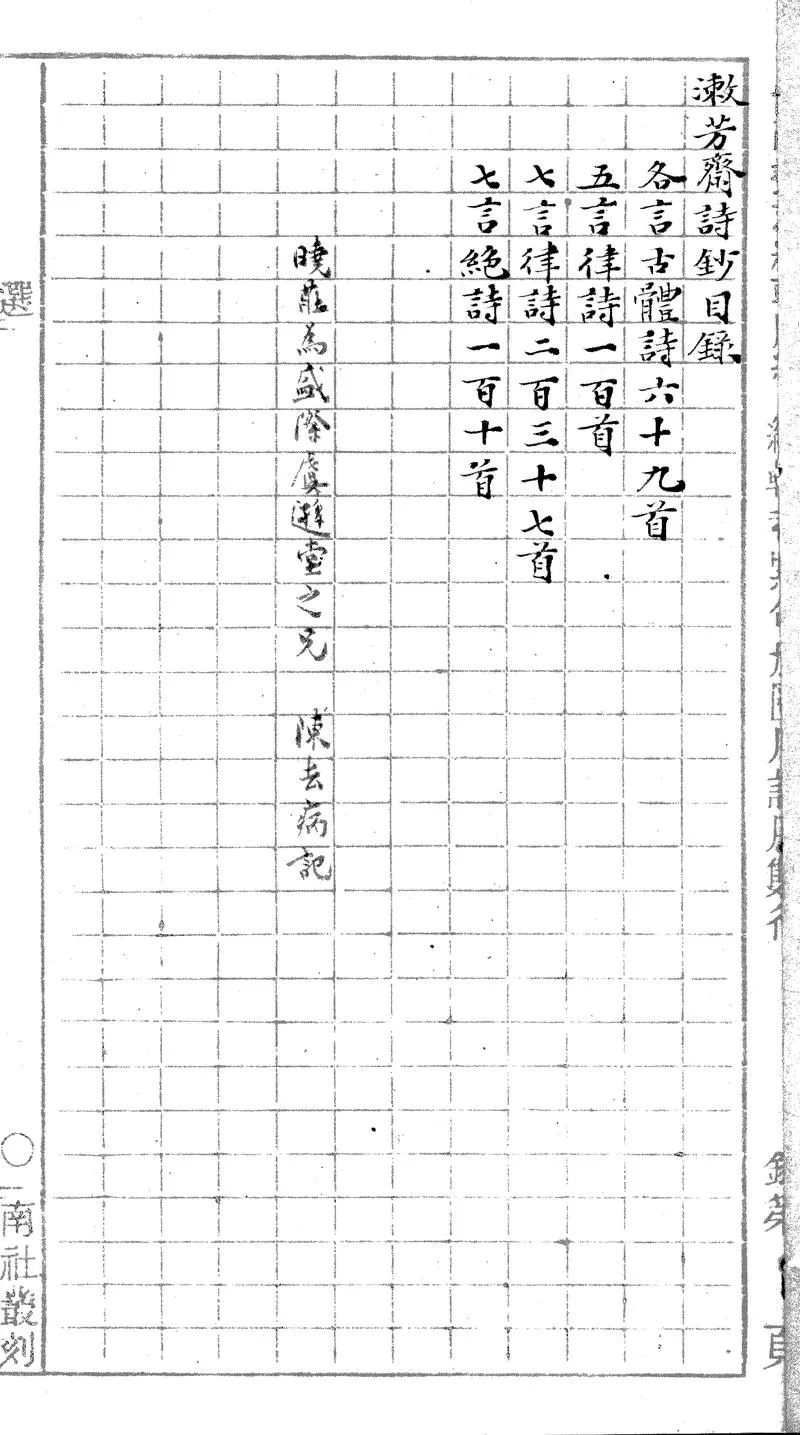 漱芳齋詩鈔目錄
各言古體詩六十九首
五言律詩一百首
七言律詩二百三十七首
七言絕詩一百十首
曉莊為盛際虞遯堂之兄 陳去病記
選
南社叢刻
頁